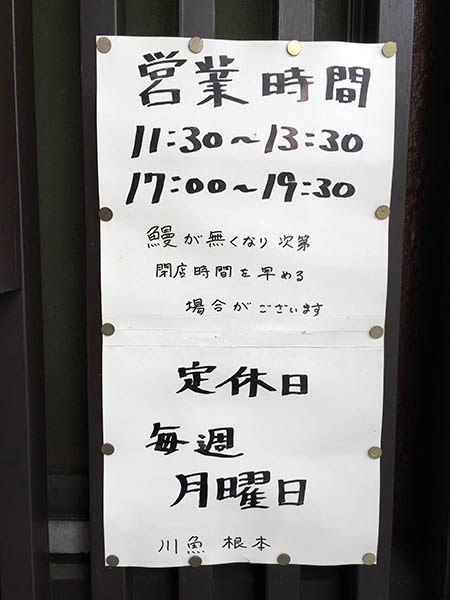 営業時間
11:30~13:30
17:00~19:30
鰻が無くなり次第
閉店時間を早める
場合がございます
定休日
毎週
月曜日
川魚 根本